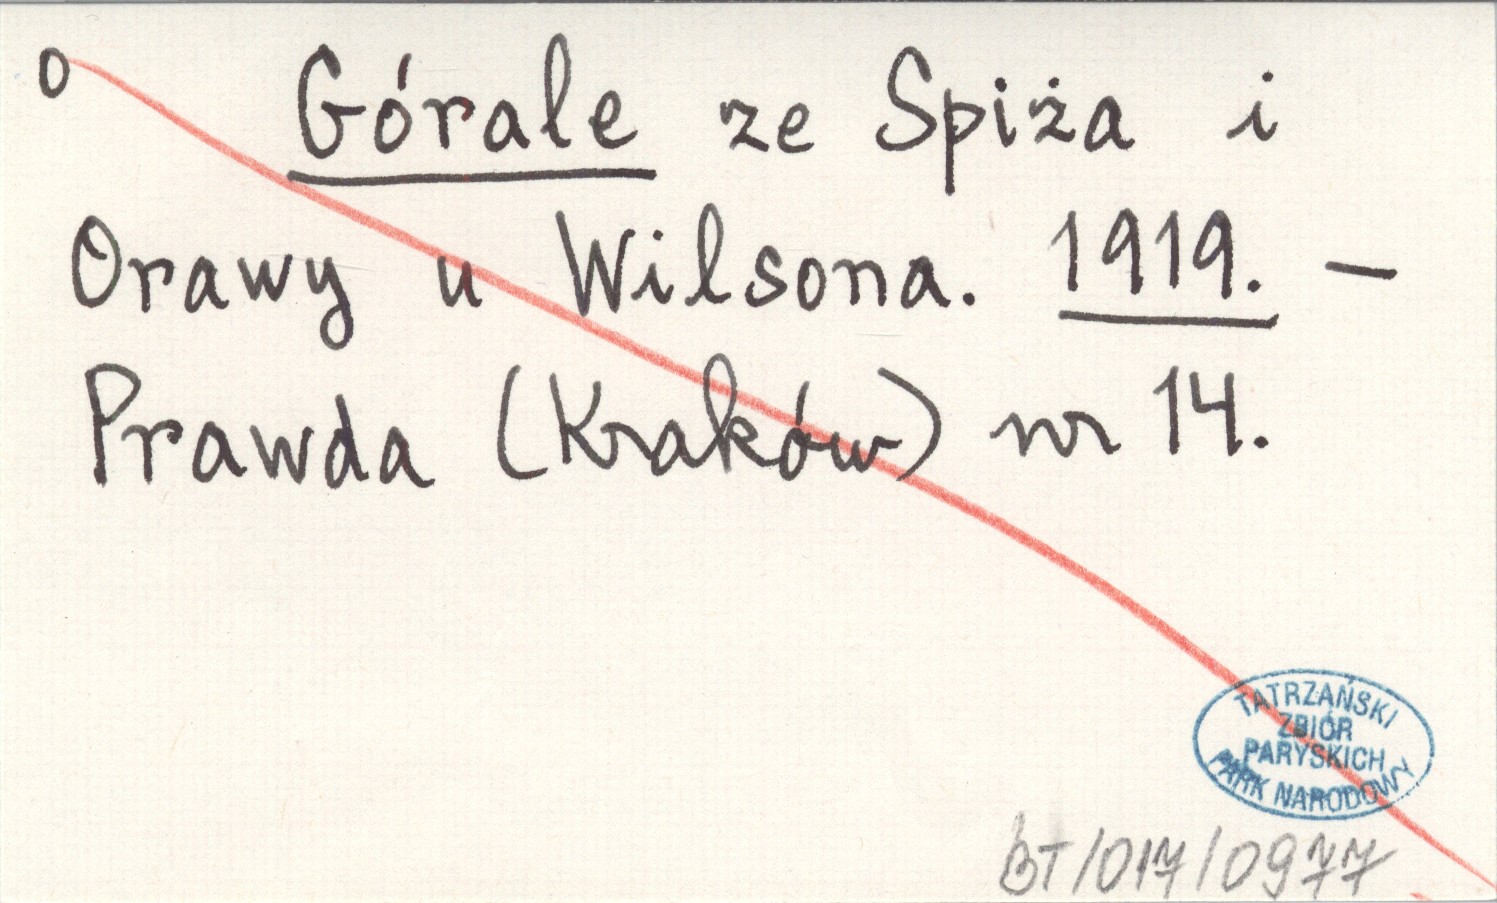 o Górale ze Spiża i
Orawy u Wilsona. 1919. –
Prawda (Kraków) nr 14.
TATRZAŃSKI
ZBIÓR
PARYSKICH
PARK NARODOWY
BT/017/0977